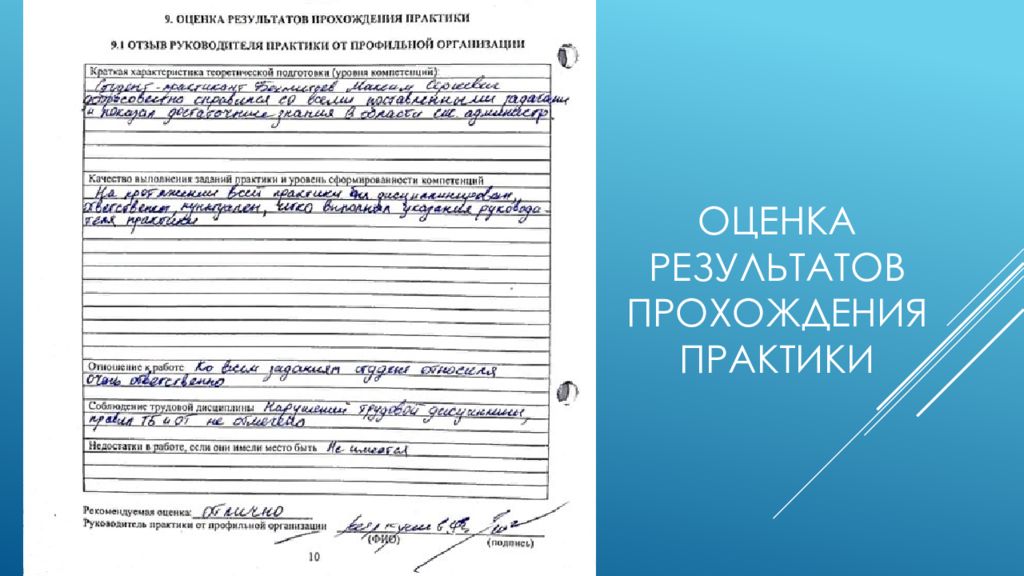 9. ОЦЕНКА РЕЗУЛЬТАТОВ ПРОХОЖДЕНИЯ ПРАКТИКИ
9.1 ОТЗЫВ РУКОВОДИТЕЛЯ ПРАКТИКИ ОТ ПРОФИЛЬНОЙ ОРГАНИЗАЦИИ
Краткая характеристика теоретической подготовки (уровня компетенций):
Студент-практикант Максим Сергеевич
добросовестно справился со всеми поставленными задачами
и показал достаточные знания в области сис. администр.
Качество выполнения заданий практики и уровень сформированности компетенций
На протяжении всей практики был дисциплинирован,
ответственен, пунктуален, чётко выполнял указания руководи-
теля практики
Отношение к работе Ко всем заданиям студент относился
очень ответственно
Соблюдение трудовой дисциплины Нарушений трудовой дисциплины,
правил ТБ и ОТ не отмечено
Недостатки в работе, если они имели место быть Не имеется
Рекомендуемая оценка: отлично
Руководитель практики от профильной организации
(ФИО) (подпись)
10
ОЦЕНКА
РЕЗУЛЬТАТОВ
ПРОХОЖДЕНИЯ
ПРАКТИКИ